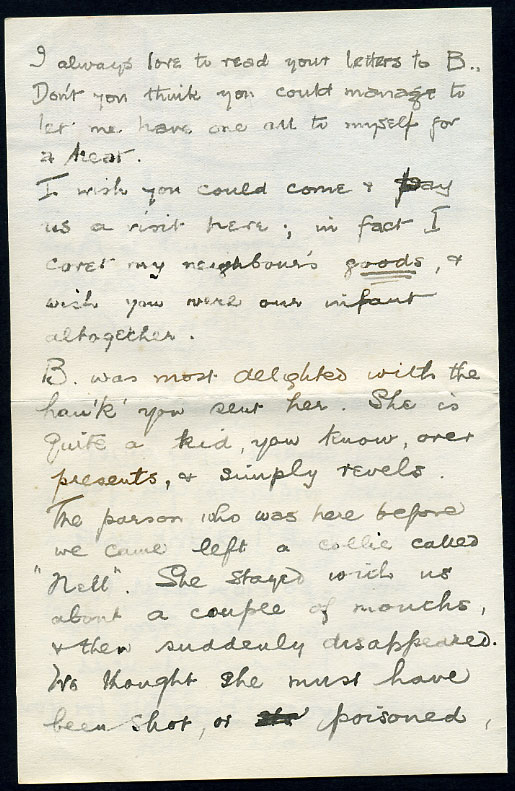 I always love to read your letters to B.,
Don't you think you could manage to
let me have one all to myself for
a treat.
I wish you could come & pay
us a visit here; in fact I
covet my neighbour's goods, &
wish you were our infant
altogether.
B. was most delighted with the
han'k' you sent her. She is
quite a kid, you know, over
presents, & simply revels.
The parson who was here before
we came left a collie called
"Nell". She stayed with us
about a couple of months,
& then suddenly disappeared.
We thought she must have
been shot, or poisoned,